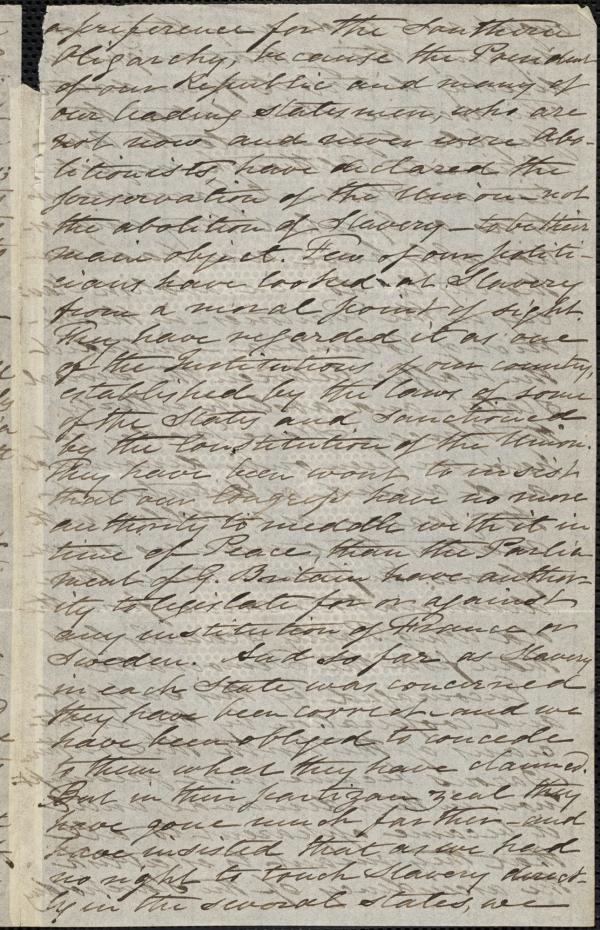 a preference for the Southern
Oligarchy, because the President
of our Republic and many of
our leading statesmen, who are
not now and never were Abo-
litionists, have declared the
preservation of the Union—not
the abolition of Slavery—to be their
main object. Few of our politi-
cians have looked at Slavery
from a moral point of sight.
They have regarded it as one
of the Institutions of our country,
established by the laws of some
of the States and sanctioned
by the Constitution of the Union.
They have been wont to insist
that our Congress have no more
authority to meddle with it in
time of Peace, than the Parlia
ment of G. Britain have author-
ity to legislate for or against
any institution of France or
Sweden. And so far as Slavery
in each State was concerned
they have been correct—and we
have been obliged to concede
to them what they have claimed.
But in their partizan zeal they
have gone much farther—and
have insisted that as we had
no right to touch Slavery direct-
ly in the several States, we